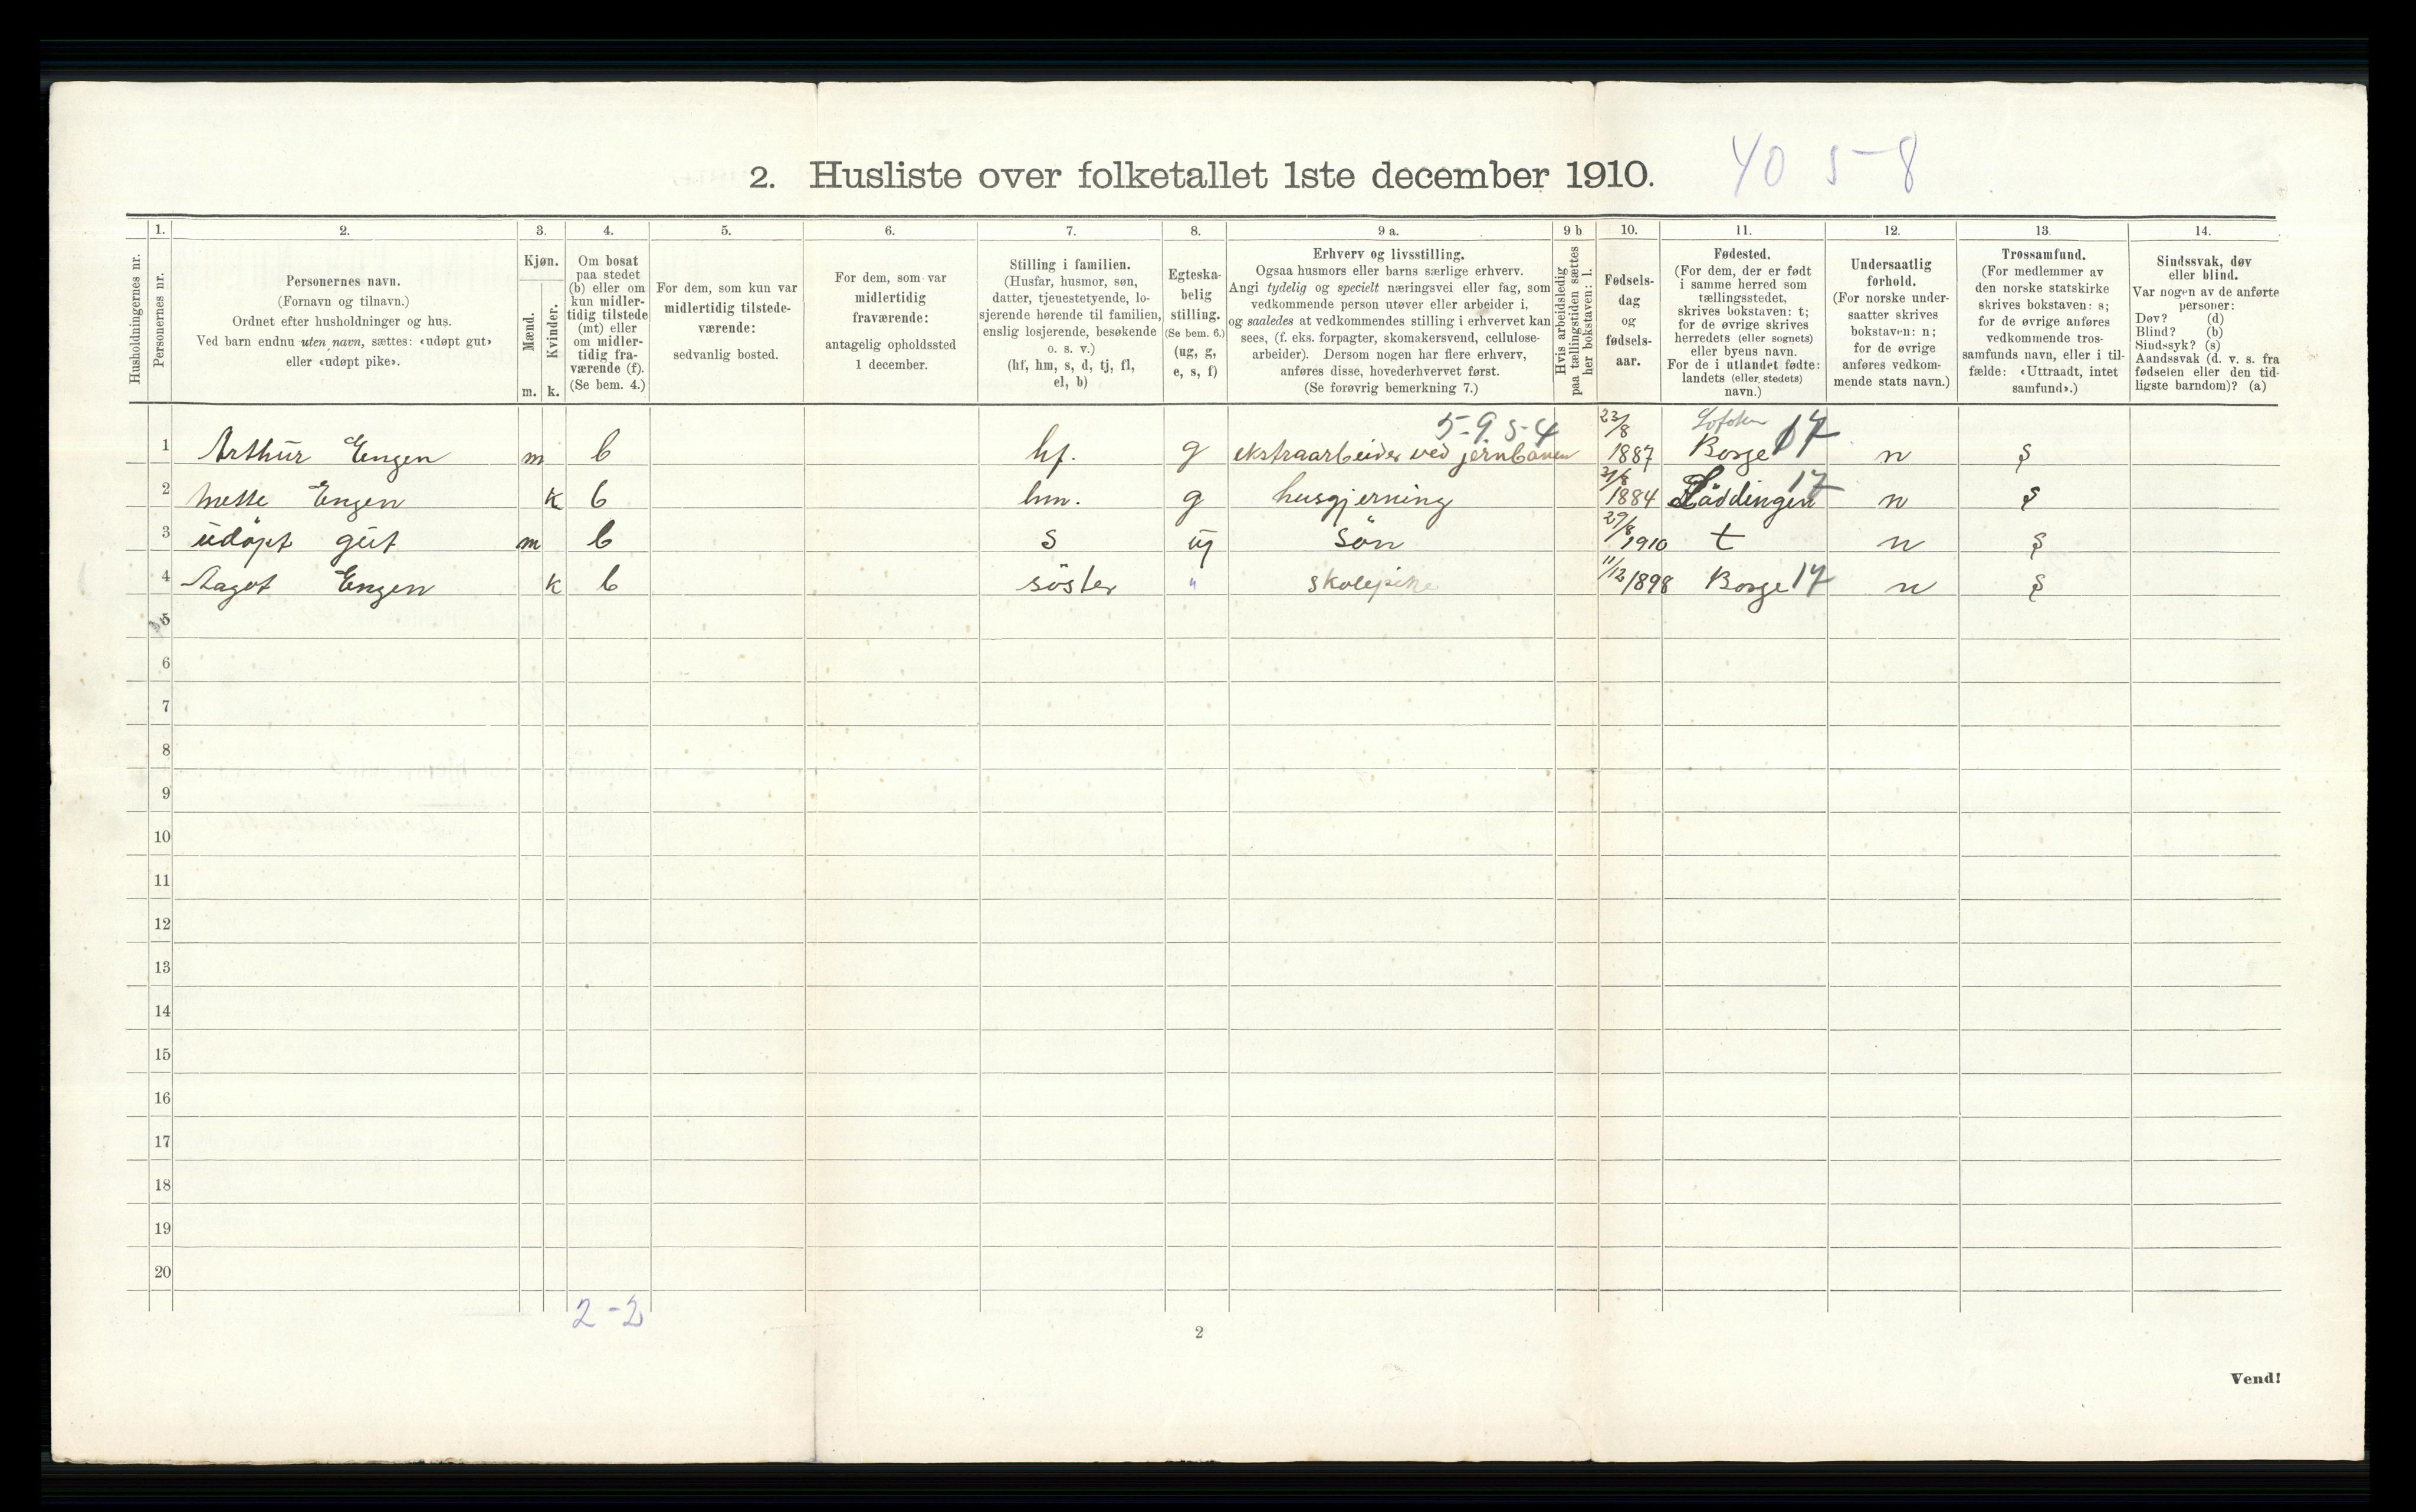 2. Husliste over folketallet 1ste december 1910. 40 5-8
Husholdningernes nr.
1.
Personernes nr.
2.
Personernes navn.
(Fornavn og tilnavn.)
Ordnet efter husholdninger og hus.
Ved barn endnu uten navn, sættes: «udøpt gut»
eller «udøpt pike».
3.
Kjøn.
Mænd.
Kvinder.
m. k.
4.
Om bosat
paa stedet
(b) eller om
kun midler-
tidig tilstede
(mt) eller
om midler-
tidig fra-
værende (f).
(Se bem. 4.)
5.
For dem, som kun var
midlertidig tilstede-
værende:
sedvanlig bosted.
6.
For dem, som var
midlertidig
fraværende:
antagelig opholdssted
1 december.
7.
Stilling i familien.
(Husfar, husmor, søn,
datter, tjenestetyende, lo-
sjerende hørende til familien,
enslig losjerende, besøkende
o. s. v.)
(hf, hm, s, d, tj, fl,
el, b)
8.
Egteska-
belig
stilling.
(Se bem. 6.)
(ug, g,
e, s, f)
9 a.
Erhverv og livsstilling.
Ogsaa husmors eller barns særlige erhverv.
Angi tydelig og specielt næringsvei eller fag, som
vedkommende person utøver eller arbeider i,
og saaledes at vedkommendes stilling i erhvervet kan
sees, (f. eks. forpagter, skomakersvend, cellulose-
arbeider). Dersom nogen har flere erhverv,
anføres disse, hovederhvervet først.
(Se forøvrig bemerkning 7.)
9 b
Hvis arbeidsledig
paa tællingstiden sættes
her bokstaven: l.
10.
Fødsels-
dag
og
fødsels-
aar.
11.
Fødested.
(For dem, der er født
i samme herred som
tællingsstedet,
skrives bokstaven: t;
for de øvrige skrives
herredets (eller sognets)
eller byens navn.
For de i utlandet fødte:
landets (eller stedets)
navn.)
12.
Undersaatlig
forhold.
(For norske under-
saatter skrives
bokstaven: n;
for de øvrige
anføres vedkom-
mende stats navn.)
13.
Trossamfund.
(For medlemmer av
den norske statskirke
skrives bokstaven: s;
for de øvrige anføres
vedkommende tros-
samfunds navn, eller i til-
fælde: «Uttraadt, intet
samfund».)
14.
Sindssvak, døv
eller blind.
Var nogen av de anførte
personer:
Døv? (d)
Blind? (b)
Sindssyk? (s)
Aandssvak (d. v. s. fra
fødselen eller den tid-
ligste barndom)? (a)
5-9 5-4 23/8 Lofoten 17
1 Arthur Engen m b hf. g ekstraarbeider ved jernbanen 1887 Borge n s
2 Mette Engen k b hm. g husgjerning 1884 Løddingen 17 n s
3 udøpt gut m b s ug Søn 29/8 1910 t n s
4 Aagot Engen k b søster " skolepike 11/12 1898 Borge 17 n s
5
6
7
8
9
10
11
12
13
14
15
16
17
18
19
20
2-2
2
Vend!